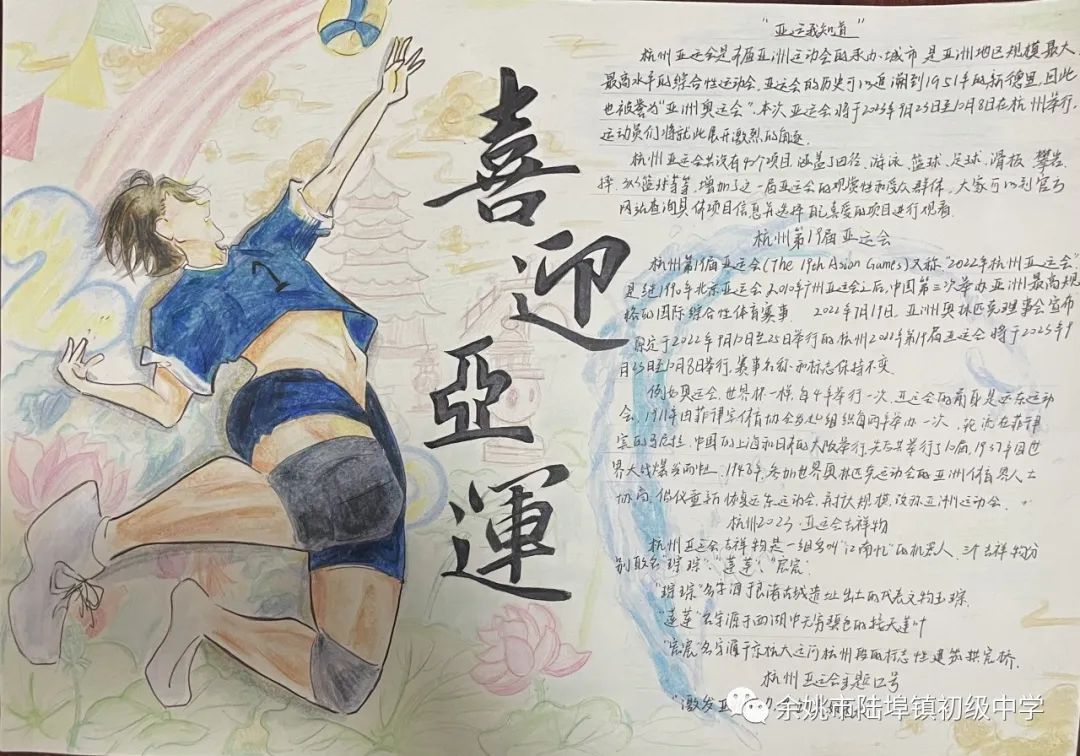 喜
迎
亞
運
"亚运我知道"
杭州亚运会是本届亚洲运动会的承办城市 是亚洲地区规模最大
最高水平的综合性运动会.亚运会的历史可以追溯到1951年的新德里.因此
也被誉为"亚洲奥运会".本次亚运会将于2023年9月23日至10月8日在杭州举行.
运动员们将就此展开激烈的角逐.
杭州亚运会共设有40个项目 涵盖了田径、游泳、篮球、足球、滑板、攀岩、
以篮球等等,增加了这一届亚运会的观赏性和受众群体.大家可以到官方
网站查询具体项目信息并选择自己喜爱的项目进行观看.
杭州第19届亚运会
杭州第19届亚运会(The 19th Asian Games)又称"2022年杭州亚运会"
是继1990年北京亚运会 2010年广州亚运会之后,中国第三次举办亚洲最高规
格的国际综合性体育赛事 2022年7月19日,亚洲奥林匹克理事会宣布
原定于2022年9月10日至25日举行的杭州2022年第19届亚运会将于2023年9
月23日至10月8日举行,赛事名称和标志保持不变.
例如奥运会,世界杯一样,每4年举行一次,亚运会的前身是远东运动
会,1911年由菲律宾体育协会发起组织每两年举办一次,轮流在菲律
宾的马尼拉、中国的上海和日本的大阪举行,先后共举行了10届,1937年因世
界大战爆发而止.1948年,参加世界奥林匹克运动会的亚洲体育界人士
协商,倡议重新恢复远东运动会,扩大规模,改称亚洲运动会.
杭州2023·亚运会吉祥物
杭州亚运会吉祥物是一组名叫"江南忆"的机器人,三个吉祥物分
别取名"琮琮"、"莲莲"、"宸宸".
"琮琮"名字源于良渚古城遗址出土的代表文物玉琮.
"莲莲"名字源于西湖中无穷碧色的接天莲叶
"宸宸"名字源于京杭大运河杭州段的标志性建筑拱宸桥.
杭州亚运会主题口号
"激发
余姚市陆埠镇初级中学